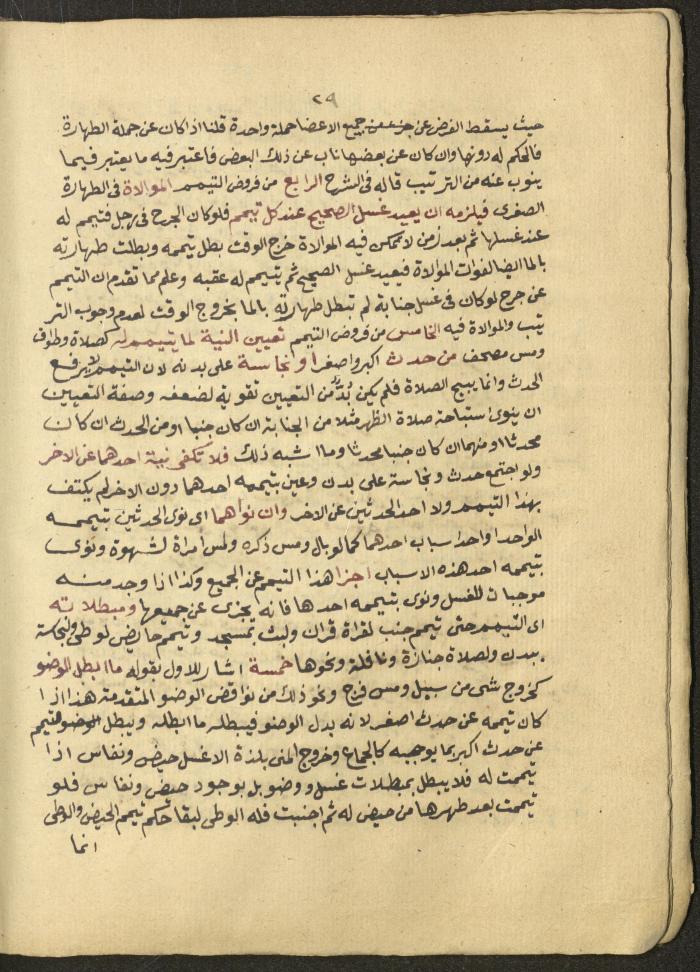 ٢٩
حيث يسقط الفرض عن جزء من جميع الاعضا جملة واحدة قلنا اذا كان عن جملة الطهارة
فالحكم له دونها وان كان عن بعضها ناب عن ذلك البعض فاعتبر فيه ما يعتبر فيما
ينوب عنه من الترتيب قاله في الشرح الرابع من فروض التيمم الموالاة في الطهارة
الصغرى فيلزمه ان يعيد غسل الصحيح عند كل تيمم فلو كان الجرح في رجل فتيمم له
عند غسلها ثم بعد زمن لا تمكن فيه الموالاة خرج الوقت بطل تيممه وبطلت طهارته
بالما ايضا لفوات الموالاة فيعيد غسل الصحيح ثم يتيمم له عقبه وعلم مما تقدم ان التيمم
عن جرح لو كان في غسل جنابة لم تبطل طهارته بالما بخروج الوقت لعدم وجوب التر
تيب والموالاة فيه الخامس من فروض التيمم تعيين النية لما يتيمم له كصلاة وطواف
ومس مصحف من حدث اكبر واصغر او نجاسة على بدنه لان التيمم لا يرفع
الحدث وانما يبيح الصلاة فلم يكن بدّ من التعيين تقوية لضعفه وصفة التعيين
ان ينوي استباحة صلاة الظهر مثلا من الجنابة ان كان جنبا او من الحدث ان كان
محدثا او منهما ان كان جنبا محدثا وما اشبه ذلك فلا تكفي نية احدهما عن الاخر
ولو اجتمع حدث ونجاسة على بدن وعين بتيممه احدهما دون الاخر لم يكتف
بهذا التيمم ولا احد الحدثين عن الاخر وان نواهما اي نوى الحدثين بتيممه
الواحد او احد اسباب احدهما كما لو بال ومس ذكره ولمس امراة لشهوة ونوى
بتيممه احد هذه الاسباب اجزا هذا التيمم عن الجميع وكذا اذا وجد منه
موجبات للغسل ونوى بتيممه احدها فانه يجزى عن جميعها ومبطلاته
اي التيمم حتى تيمم جنب لقراة قران ولبث بمسجد وتيمم حايض لوطى ولنجاسة
ببدن ولصلاة جنازة ونافلة ونحوها خمسة اشار للاول بقوله ما ابطل الوضو
كخروج شى من سبيل ومس فرج ونحو ذلك من نواقض الوضو المتقدمة هذا اذا
كان تيممه عن حدث اصغر لانه بدل الوضو فيبطله ما ابطله ويبطل الوضو تيمم
عن حدث اكبر بما يوجبه كالجماع وخروج المنى بلذة الا غسل حيض ونفاس اذا
تيممت له فلا يبطل بمبطلات غسل ووضو بل بوجود حيض ونفاس فلو
تيممت بعد طهرها من حيض له ثم اجنبت فله الوطى لبقا حكم تيمم الحيض والوطى
انما